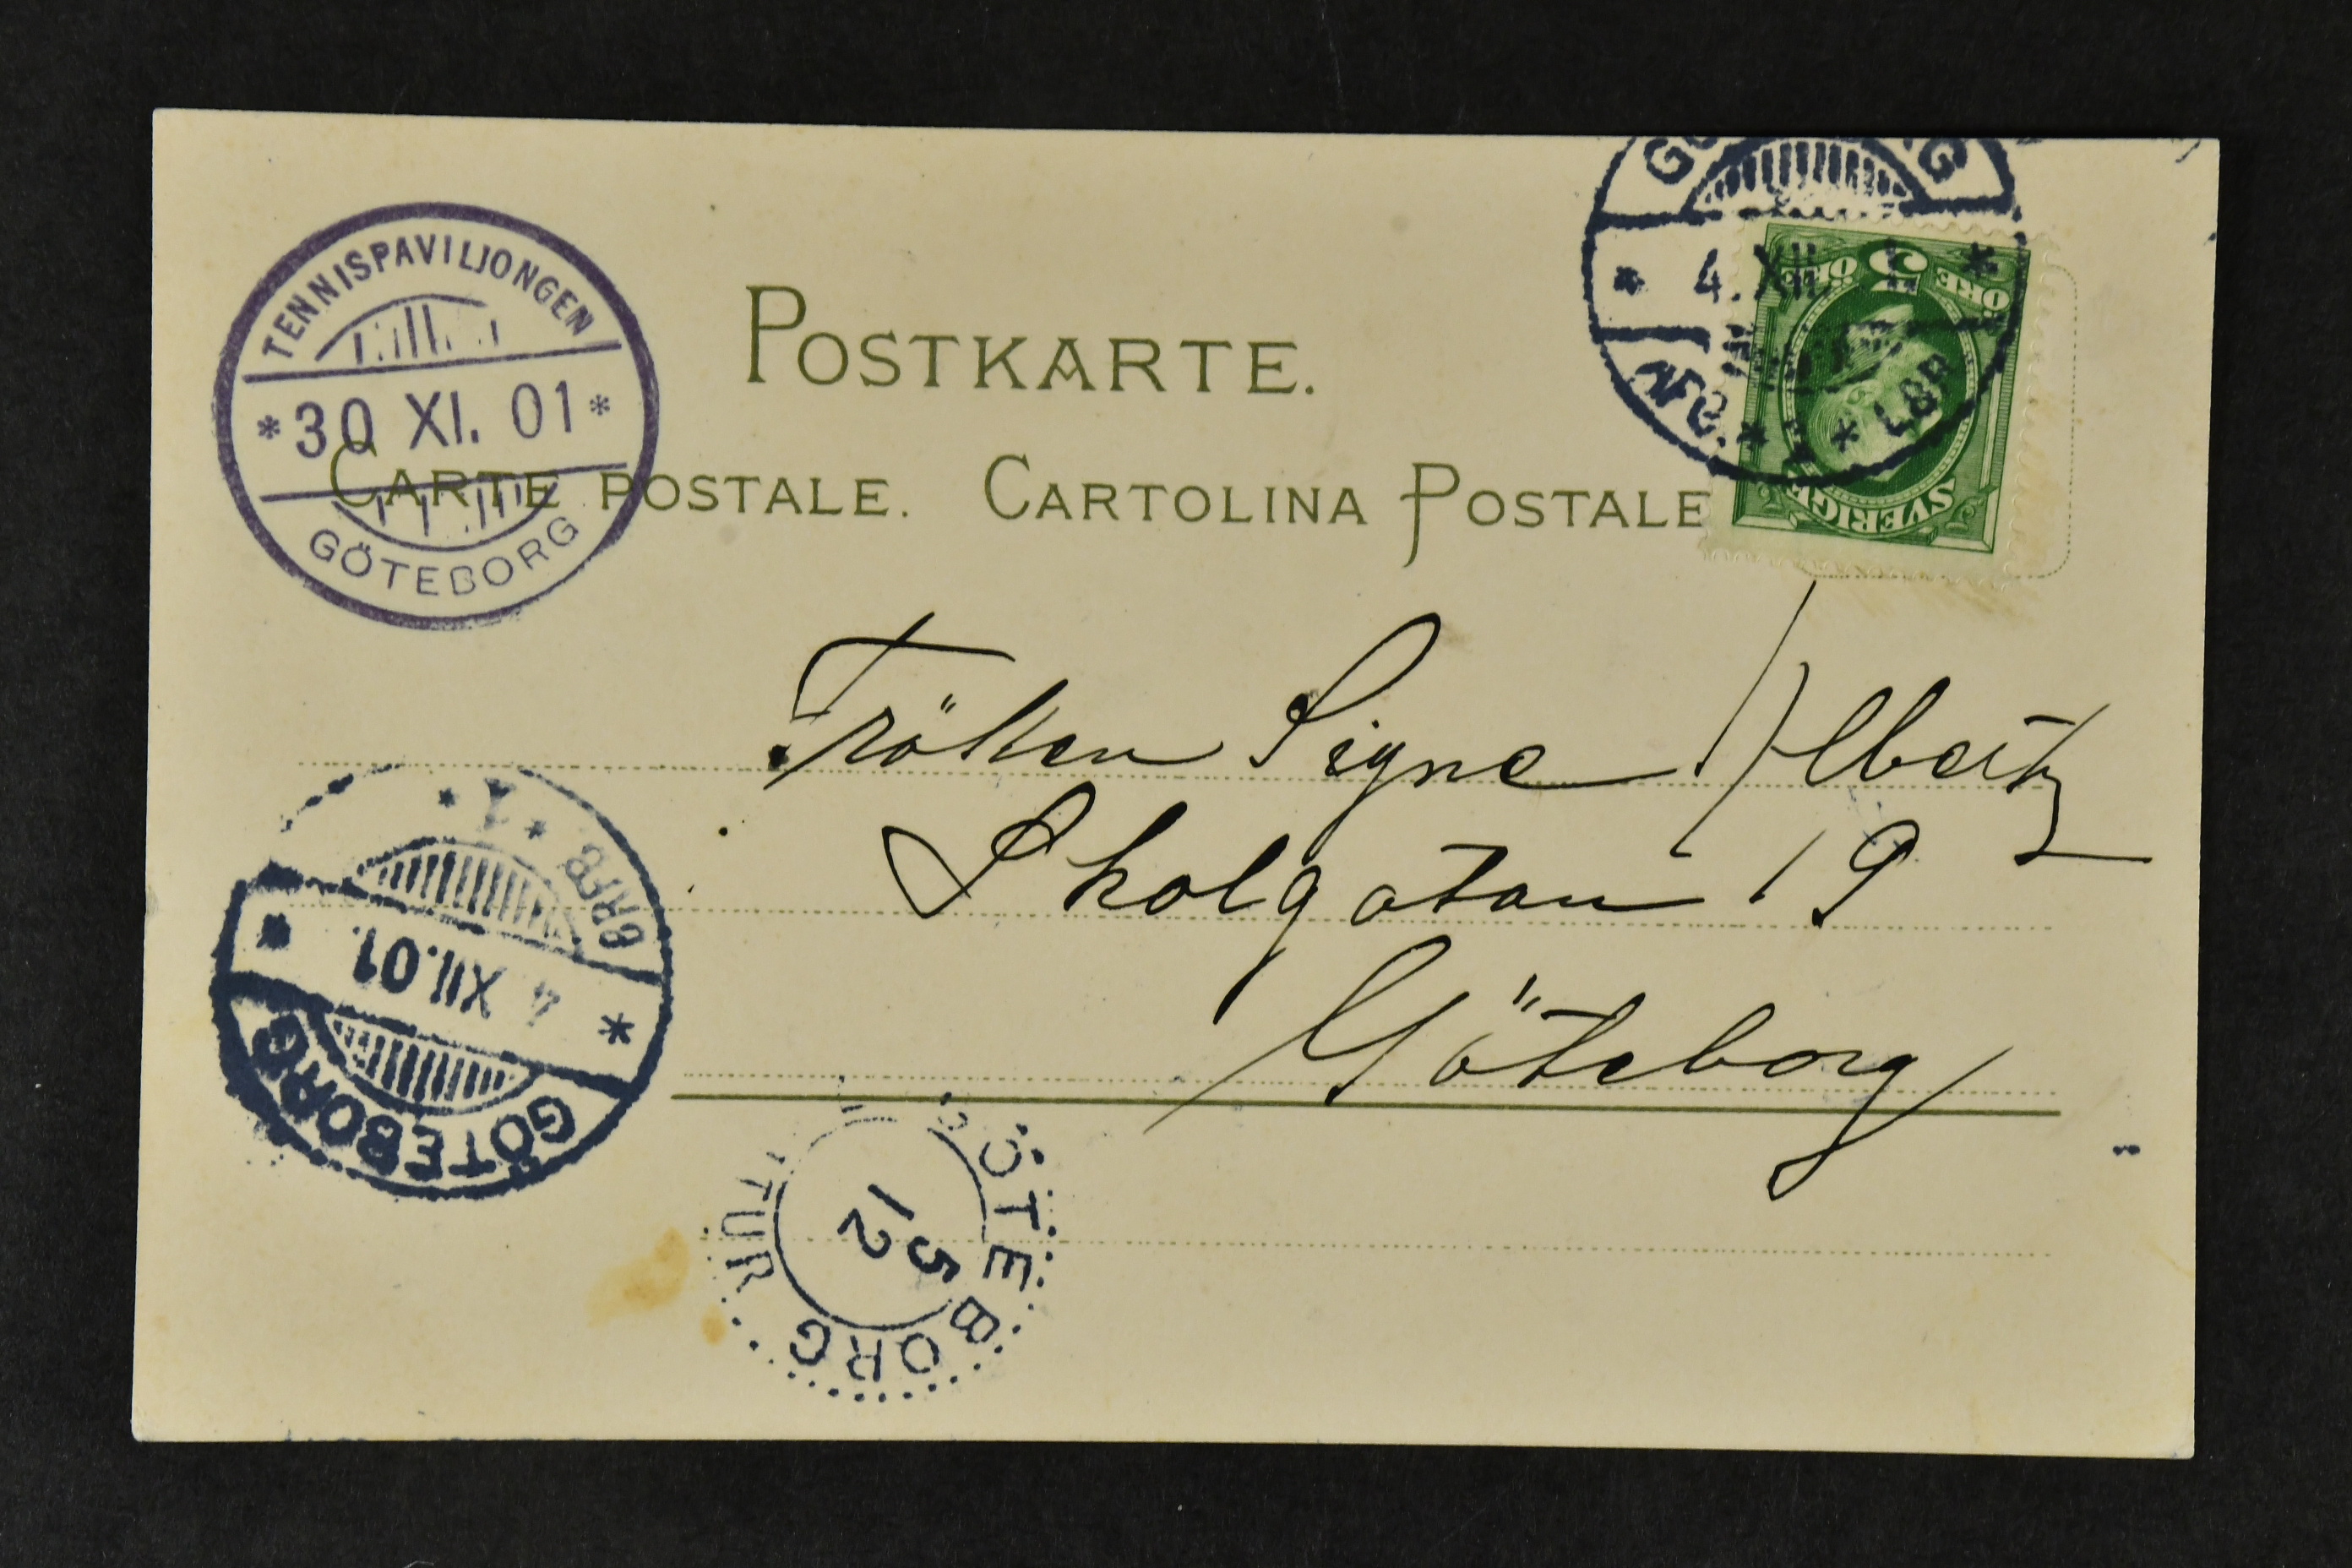 TENNISPAVILJONGEN
* 30 XI. 01 *
GÖTEBORG
POSTKARTE.
CARTE POSTALE. CARTOLINA POSTALE
* 4. XII *
* LBR
5
ÖRE ÖRE
SVERIGE
Fröken Signe Albertz
Skolgatan 19
Göteborg
GÖTEBORG
* 4 XII.01. *
GÖTEBORG
TUR
5
12